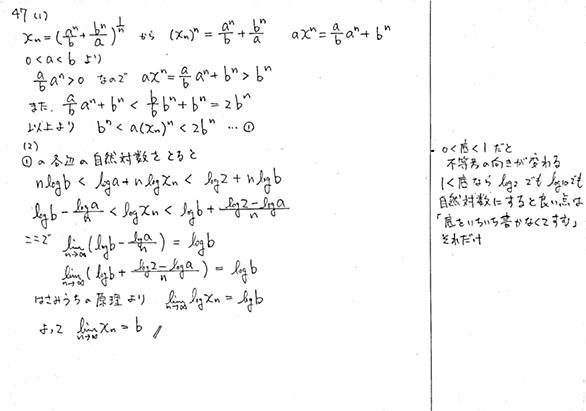 47 (1)
xₙ = (aⁿ/b + bⁿ/a)^(1/n) から (xₙ)ⁿ = aⁿ/b + bⁿ/a axⁿ = a/b aⁿ + bⁿ
0<a<b より
a/b aⁿ>0 なので axⁿ = a/b aⁿ + bⁿ > bⁿ
また、a/b aⁿ + bⁿ < b/b bⁿ + bⁿ = 2bⁿ
以上より bⁿ < a(xₙ)ⁿ < 2bⁿ … ①
(2)
①の各辺の自然対数をとると
n log b < log a + n log xₙ < log 2 + n log b
log b − log a/n < log xₙ < log b + (log 2 − log a)/n
ここで lim n→∞ (log b − log a/n) = log b
lim n→∞ (log b + (log 2 − log a)/n) = log b
はさみうちの原理より lim n→∞ log xₙ = log b
よって lim n→∞ xₙ = b //
・0<底<1だと
不等号の向きが変わる
1<底なら log₂ でも log₁₀ でも
自然対数にすると良い点は
「底をいちいち書かなくてすむ」
それだけ